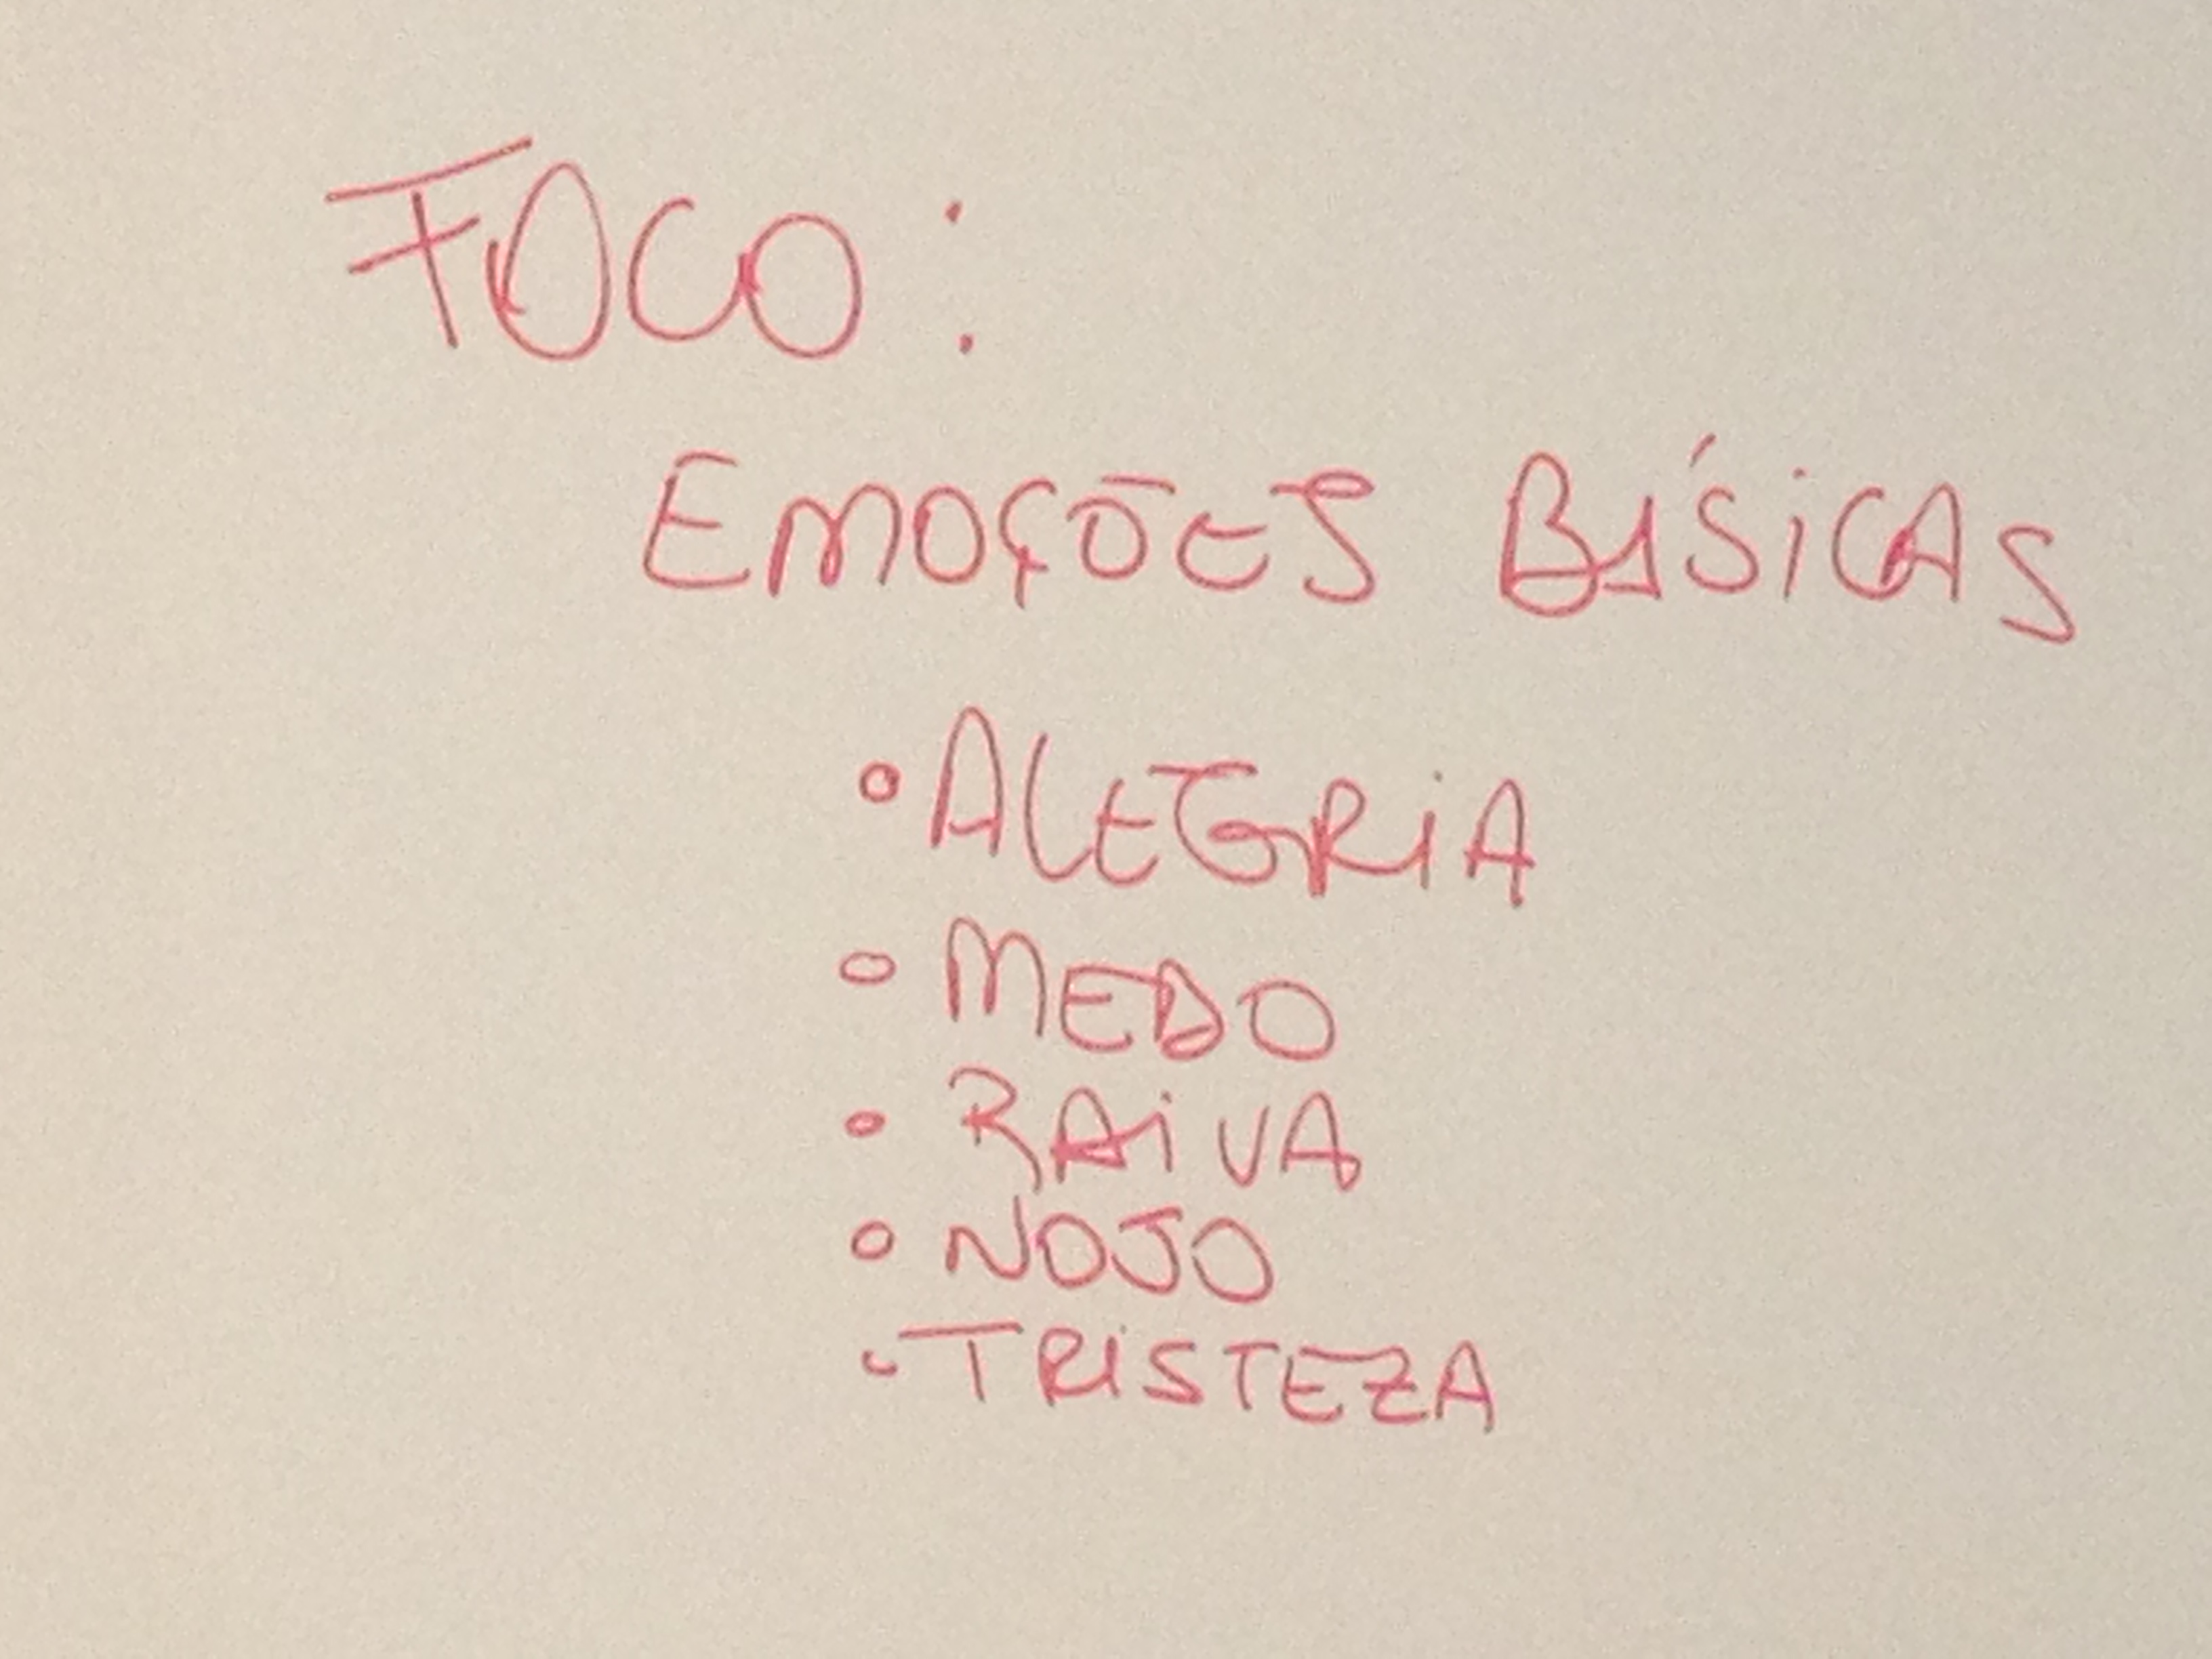 FOCO:
EMOÇÕES BÁSICAS
• ALEGRIA
• MEDO
• RAIVA
• NOJO
• TRISTEZA